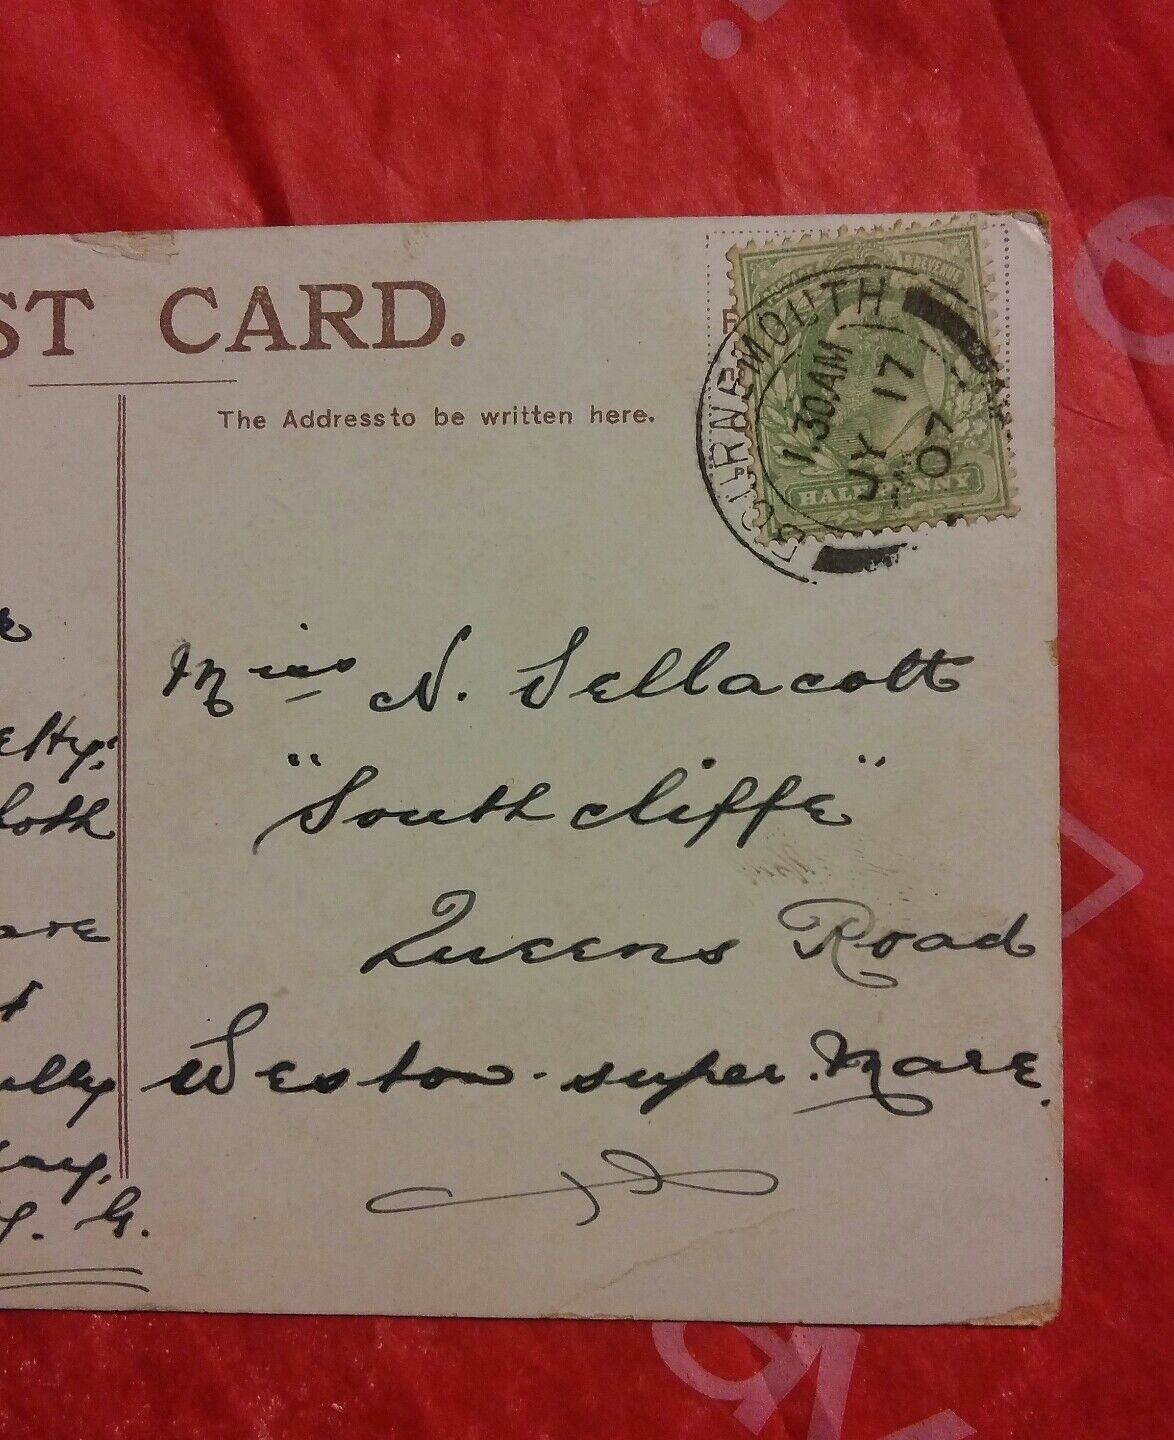 ST CARD.
The Address to be written here.
BOURNEMOUTH
1.30AM
JY 17
07
HALFPENNY
Miss N. Sellacott
"Southcliffe"
Queens Road
Weston-super-Mare.
G.